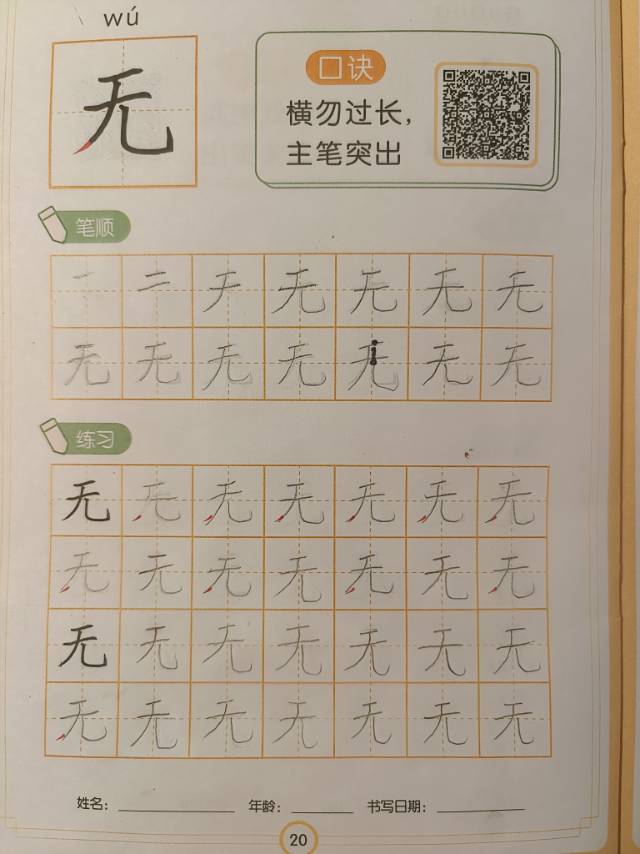 wú
无
口诀
横勿过长，
主笔突出
笔顺
一 二 𠂇 无 无 无 无
无 无 无 无 无 无 无
练习
无 无 无 无 无 无 无
无 无 无 无 无 无 无
无 无 无 无 无 无 无
无 无 无 无 无 无 无
姓名： 年龄： 书写日期：
20